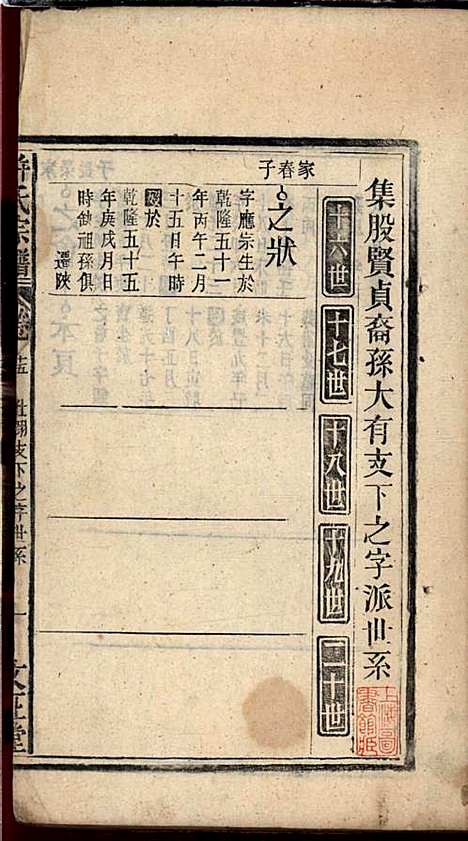 集股賢貞裔孫大有支下之字派世系
十六世
十七世
十八世
十九世
二十世
家春子
之狀
字應宗生於
乾隆五十一
年丙午二月
十五日午時
歿於
乾隆五十五
年庚戌月日
時缺祖孫俱
遷陜
氏宗譜
支下之字世系
文在堂
上海圖
書館藏